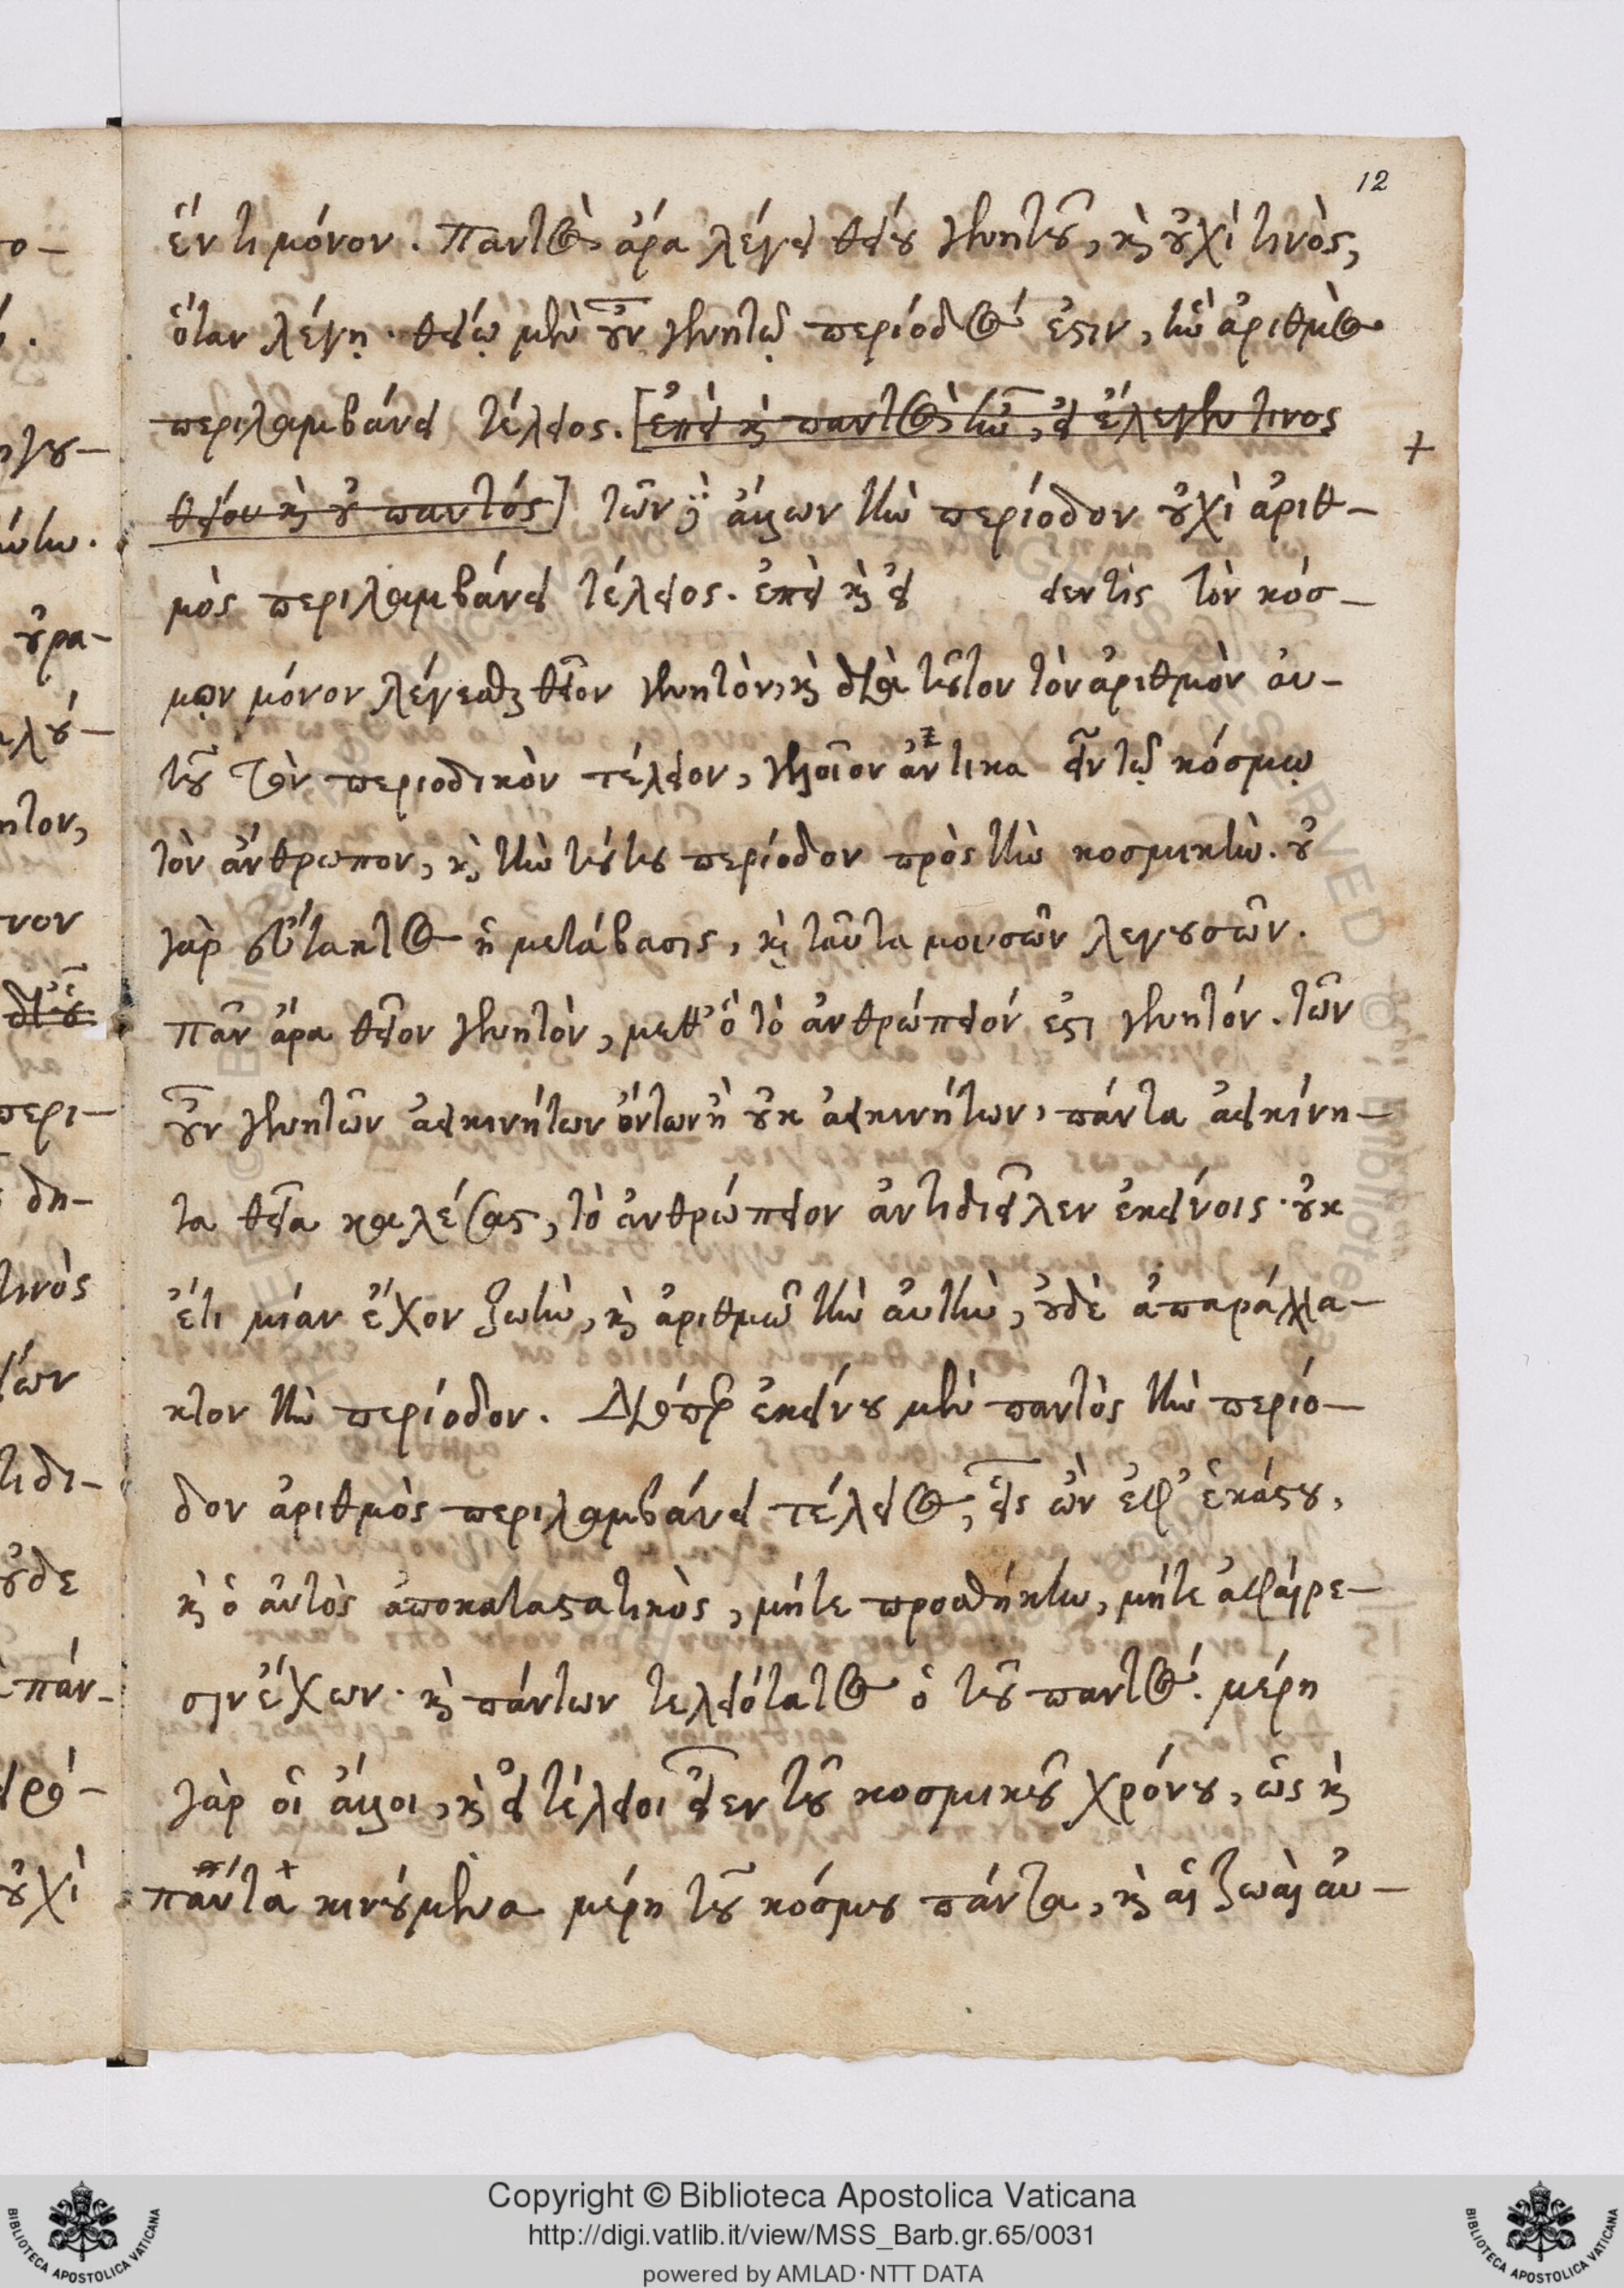 12
ἕν τι μόνον. παντὸς ἄρα λέγει θείου γεννητοῦ, καὶ οὐχί τινὸς,
ὅταν λέγῃ. θείῳ μὲν οὖν γεννητῷ περίοδός ἐστιν, ἣν ἀριθμὸς
περιλαμβάνει τέλειος. [ἐπεὶ καὶ παντὸς ἦν, εἰ ἔλεγεν τινος
θείου καὶ οὐ παντός] τῶν δὲ ἄλλων τὴν περίοδον οὐχὶ ἀριθ-
μὸς περιλαμβάνει τέλειος. ἐπεὶ καὶ εἰ εν τὶς τὸν κόσ-
μον μόνον λέγεσθαι θεῖον γεννητὸν, καὶ διὰ τοῦτον τὸν ἀριθμὸν αυ-
τοῦ τὸν περιοδικὸν τέλειον, ἄν τικα ἐν τῷ κόσμῳ
τὸν ἄνθρωπον, καὶ τὴν τούτου περίοδον πρὸς τὴν κοσμικὴν. οὐ
γὰρ εὔτακτος ἡ μετάβασις, καὶ ταῦτα μουσῶν λεγουσῶν.
πᾶν ἄρα θεῖον γεννητὸν, μεθ' ὃ τὸ ἀνθρώπειόν ἐστι γεννητόν. τῶν
οὖν γεννητῶν ἀεικινήτων ὄντων ἢ οὐκ ἀεικινήτων, πάντα ἀεικίνη-
τα θεῖα καλέσας, τὸ ἀνθρώπειον ἀντιδιεῖλεν ἐκείνοις. οὐκ
έτι μίαν ἔχον ζωὴν, καὶ ἀριθμῷ τὴν αὐτὴν, οὐδὲ ἀπαράλλα-
κτον τὴν περίοδον. Διόπερ ἐκείνου μὲν παντὸς τὴν περίο-
δον ἀριθμὸς περιλαμβάνει τέλειος, εἷς ὢν ἐφ' ἑκάστου,
καὶ ὁ αὐτὸς ἀποκαταστατικὸς, μήτε προσθήκην, μήτε ἀφαίρε-
σιν ἔχων. καὶ πάντων τελειότατος ὁ τοῦ παντός. μέρη
γὰρ οἱ ἄλλοι, καὶ εἰ τέλειοι εἶεν τοῦ κοσμικοῦ χρόνου, ὡς καὶ
παντα κινούμενα μέρη τοῦ κόσμου πάντα, καὶ αἱ ζωαὶ αὐ-
Copyright © Biblioteca Apostolica Vaticana
http://digi.vatlib.it/view/MSS_Barb.gr.65/0031
powered by AMLAD·NTT DATA